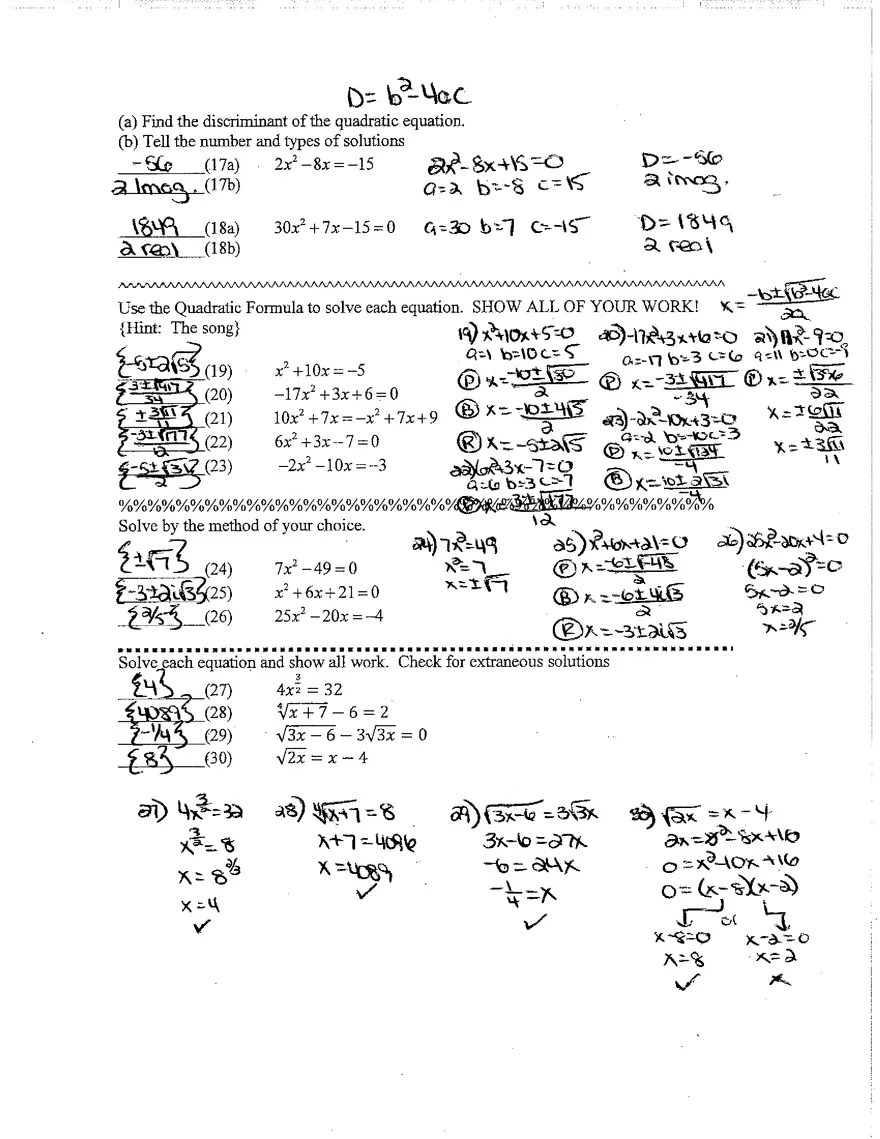 D= b²-4ac
(a) Find the discriminant of the quadratic equation.
(b) Tell the number and types of solutions
-56 (17a) 2x² – 8x = –15 2x²-8x+15=0 D=-56
2 Imag. (17b) a=2 b=-8 c=15 2 imag.
1849 (18a) 30x² + 7x – 15 = 0 a=30 b=7 c=-15 D=1849
2 real (18b) 2 real
Use the Quadratic Formula to solve each equation. SHOW ALL OF YOUR WORK! x= -b±√b²-4ac / 2a
{Hint: The song}
{-5±2√5} (19) x² +10x = –5
{3±√417 / 34} (20) –17x² + 3x + 6 = 0
{±3√11 / 11} (21) 10x² + 7x = –x² + 7x + 9
{-3±√177 / 12} (22) 6x² + 3x – 7 = 0
{-5±√31 / 2} (23) –2x² –10x = –3
19) x²+10x+5=0
a=1 b=10 c=5
(P) x= -10±√80 / 2
(B) x= -10±4√5 / 2
(R) x= -5±2√5
20) -17x²+3x+6=0
a=-17 b=3 c=6
(P) x= -3±√417 / -34
21) 11x²-9=0
a=11 b=0 c=-9
(P) x= ±√396 / 22
x= ±6√11 / 22
x= ±3√11 / 11
22) 6x²+3x-7=0
a=6 b=3 c=-7
(P) x= -3±√177 / 12
23) -2x²-10x+3=0
a=-2 b=-10 c=3
(P) x= 10±√124 / -4
(B) x= 10±2√31 / -4
%%%%%%%%%%%%%%%%%%%%%%%%%%%%%%%%%%%%%%%%
Solve by the method of your choice.
{±√7} (24) 7x² – 49 = 0
{-3±2i√3} (25) x² + 6x + 21 = 0
{2/5} (26) 25x² – 20x = –4
24) 7x²=49
x²=7
x=±√7
25) x²+6x+21=0
(P) x= -6±√-48 / 2
(B) x= -6±4i√3 / 2
(R) x=-3±2i√3
26) 25x²-20x+4=0
(5x-2)²=0
5x-2=0
5x=2
x=2/5
Solve each equation and show all work. Check for extraneous solutions
{4} (27) 4x^(3/2) = 32
{4089} (28) ⁴√x + 7 – 6 = 2
{-1/4} (29) √3x – 6 – 3√3x = 0
{8} (30) √2x = x – 4
27) 4x^(3/2)=32
x^(3/2)=8
x=8^(2/3)
x=4
✓
28) ⁴√x+7=8
x+7=4096
x=4089
✓
29) √3x-6=3√3x
3x-6=27x
-6=24x
-1/4=x
✓
30) √2x = x-4
2x=x²-8x+16
0=x²-10x+16
0=(x-8)(x-2)
or
x-8=0 x-2=0
x=8 x=2
✓ x